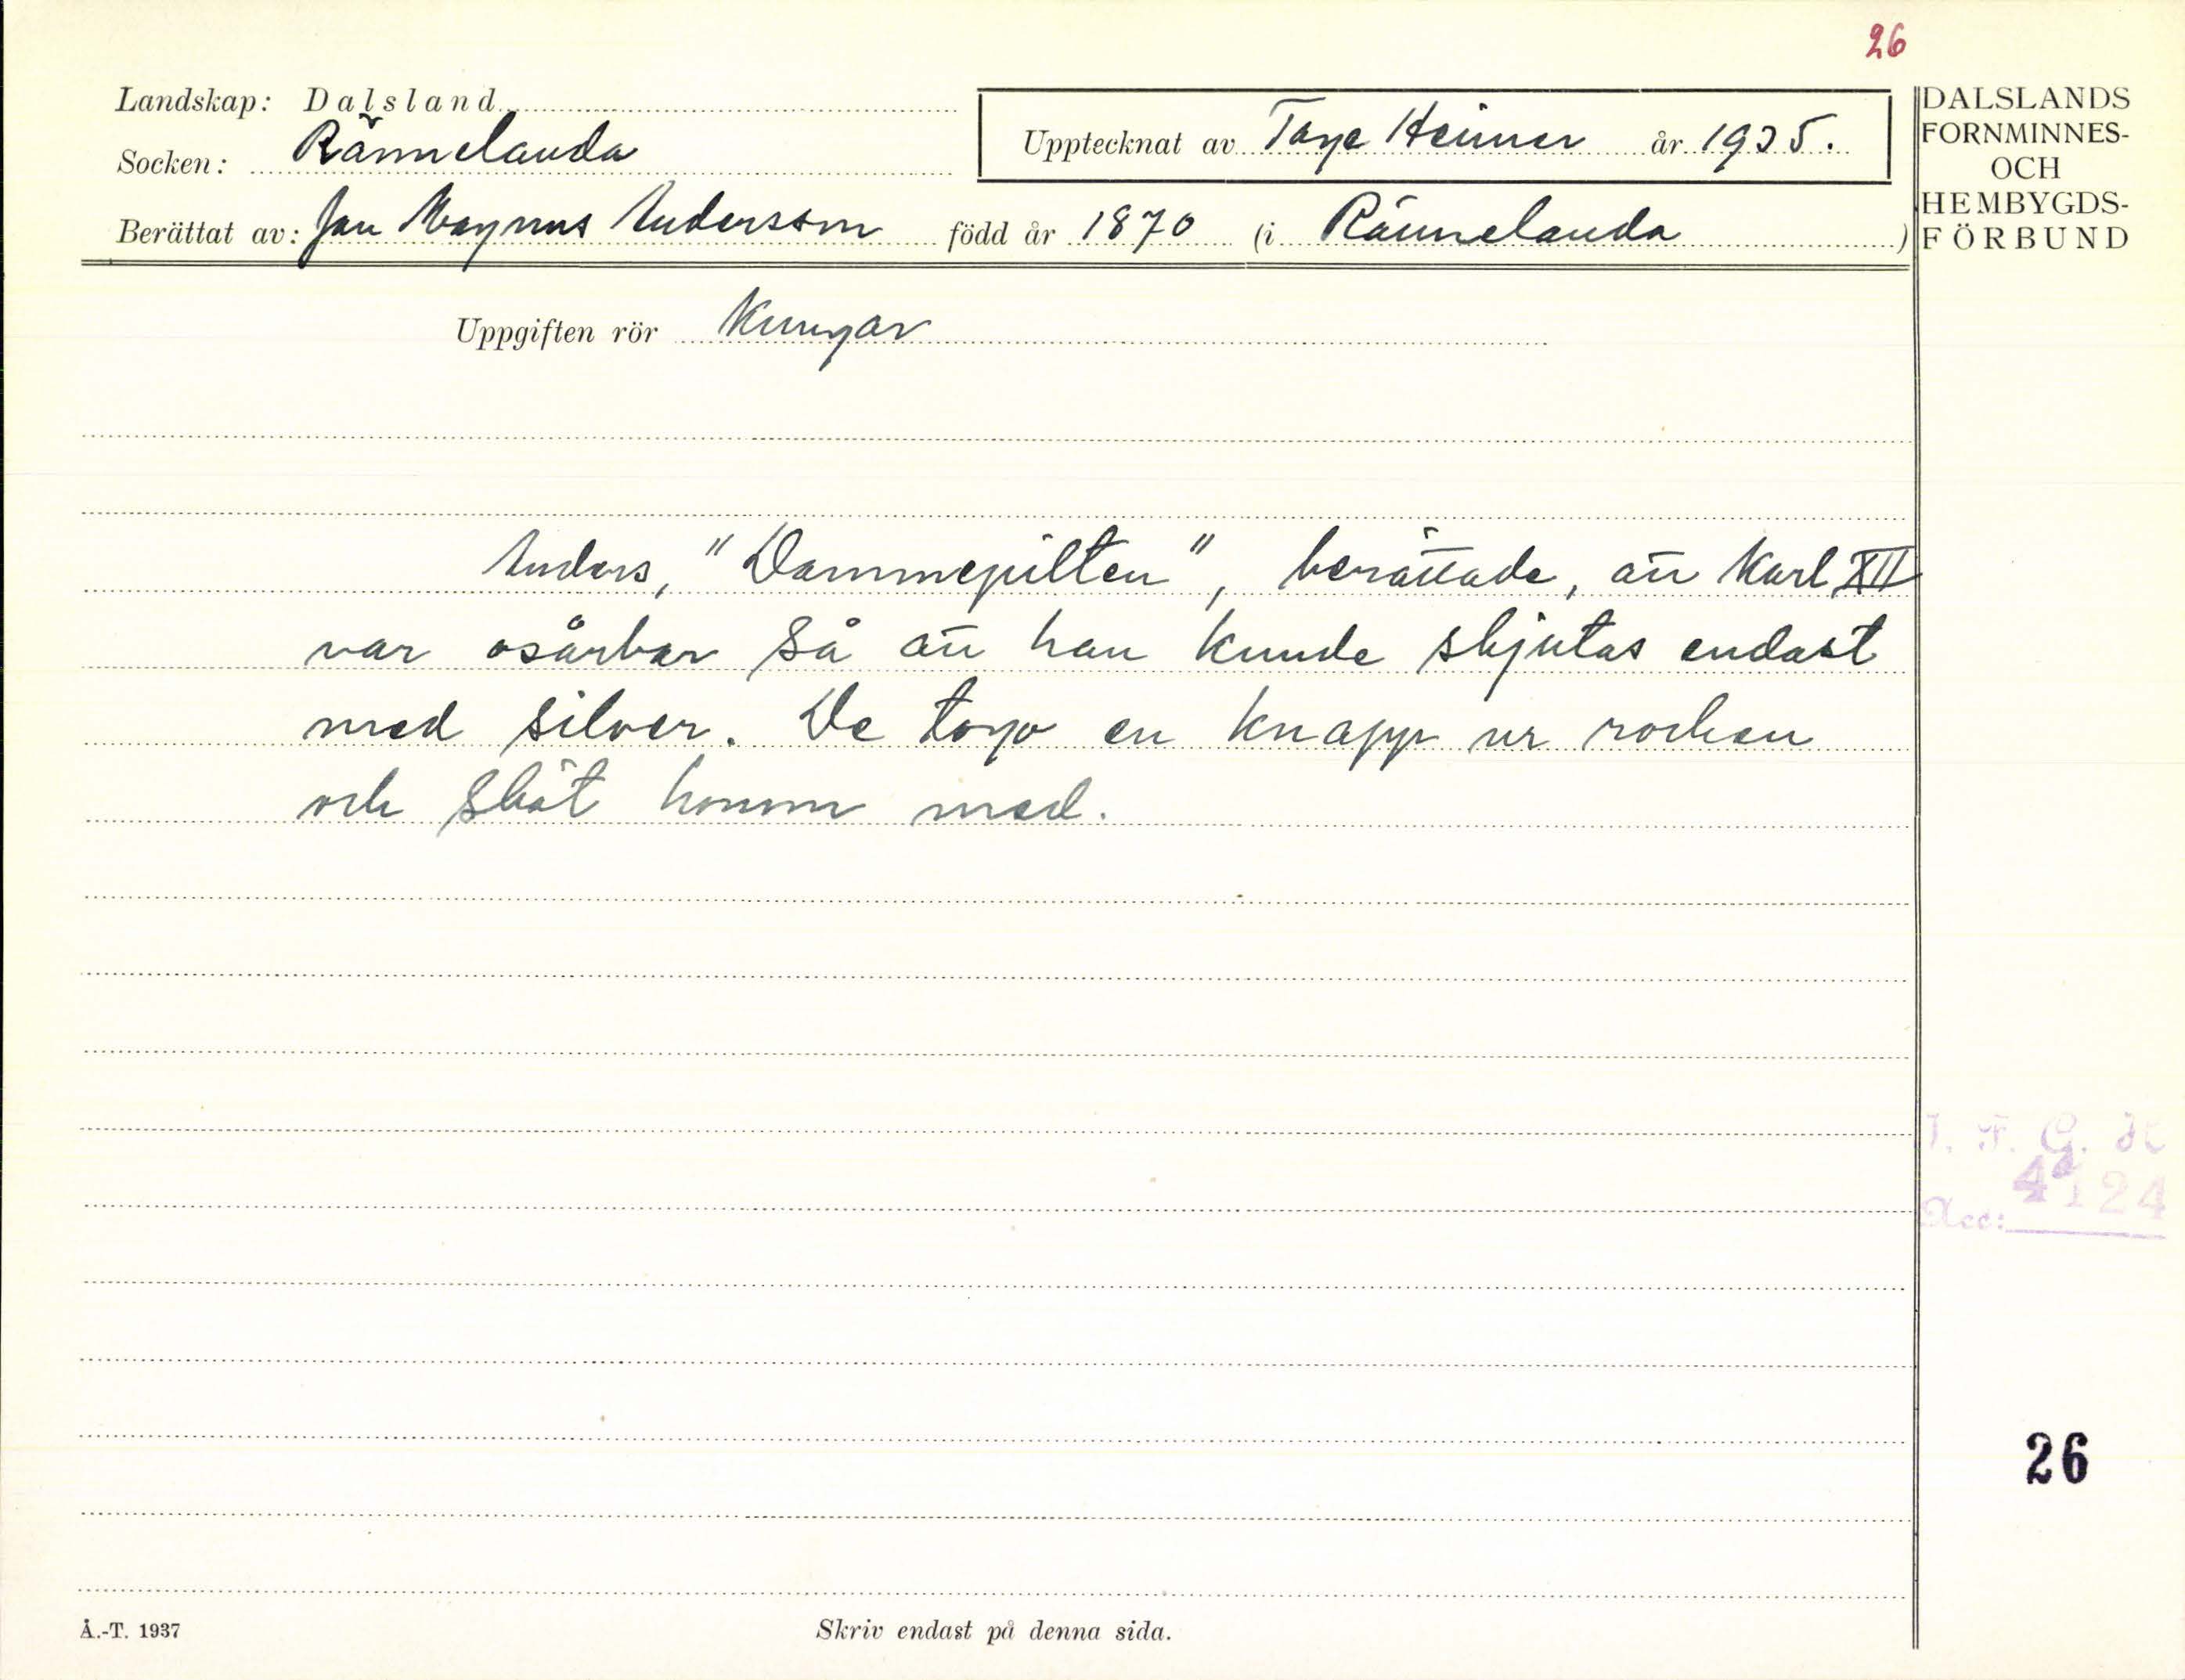 26
Landskap: Dalsland
Socken: Rännelanda
Upptecknat av Tage Heimer år 1935.
Berättat av: Jan Magnus Andersson född år 1870 (i Rännelanda)
DALSLANDS
FORNMINNES-
OCH
HEMBYGDS-
FÖRBUND
Uppgiften rör Kungar
Anders, "Dammepilten", berättade, att Karl XII
var osårbar så att han kunde skjutas endast
med silver. De togo en knapp ur rocken
och sköt honom med.
I. F. G. H
Acc: 4124
26
Å.-T. 1937
Skriv endast på denna sida.